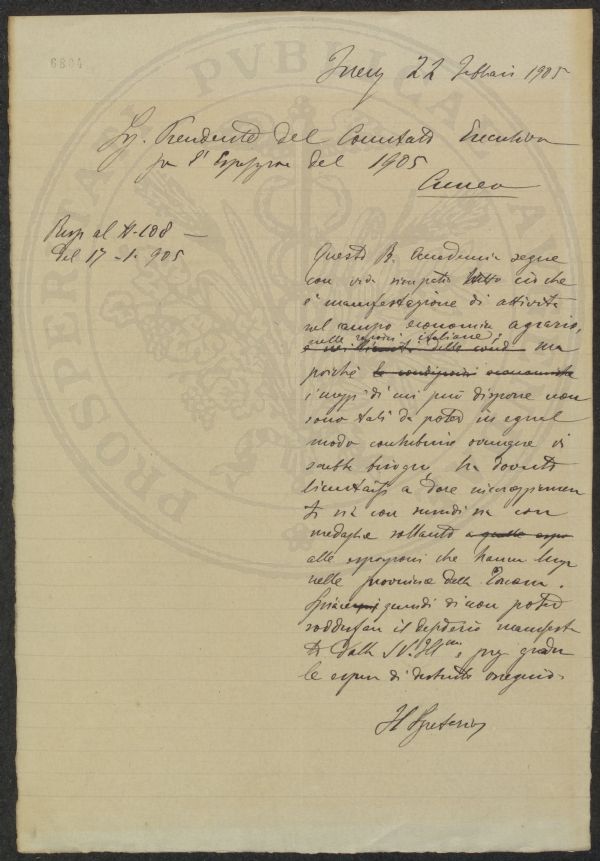 6804
22 Febbraio 1905
Sig. Presidente del Comitato Esecutivo
per l'Esposizione del 1905
Cuneo
Risp al N. 108 —
del 17 - 1 - 905
Questa R. Accademia segue
con viva simpatia tutto ciò che
è manifestazione di attività
nel campo economico agrario,
nelle regioni italiane; 
delle cond ma
poiché le condizioni economiche
i mezzi di cui può disporre non
sono tali da poter in egual
modo contribuire ovunque vi
sarebbe bisogno, ha dovuto
limitarsi a dare incoraggiamen
ti sia con sia con
medaglie soltanto a quelle espo
alle esposizioni che hanno luogo
nelle provincie della Toscana.
quindi di non poter
soddisfare il desiderio manifesta
to dalla S.V. Ill.ma e
di distinto ossequio.
Il Segretario
PROSPERITATI PVBLICAE AV